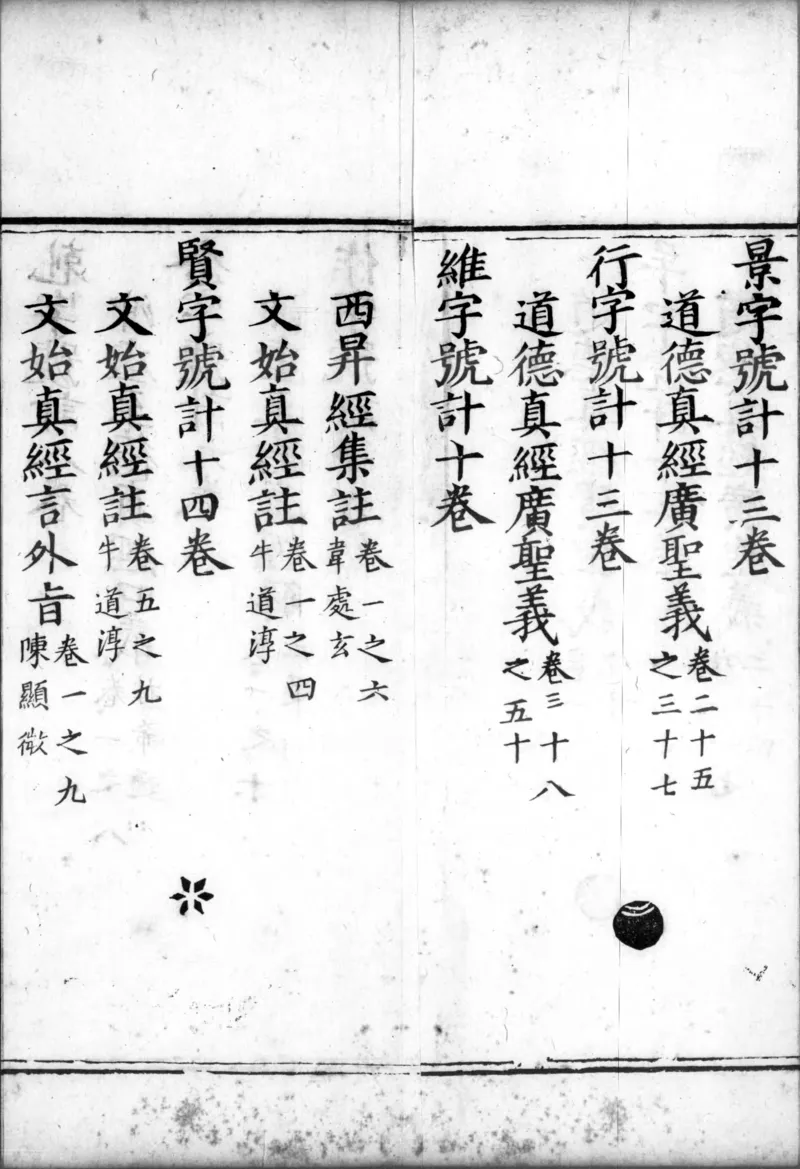 景字號計十三卷
道德真經廣聖義卷二十五之三十七
行字號計十三卷
道德真經廣聖義卷三十八之五十
維字號計十卷
西昇經集註卷一之六韋處玄
文始真經註卷一之四牛道淳
賢字號計十四卷
文始真經註卷五之九牛道淳
文始真經言外旨卷一之九陳顯微